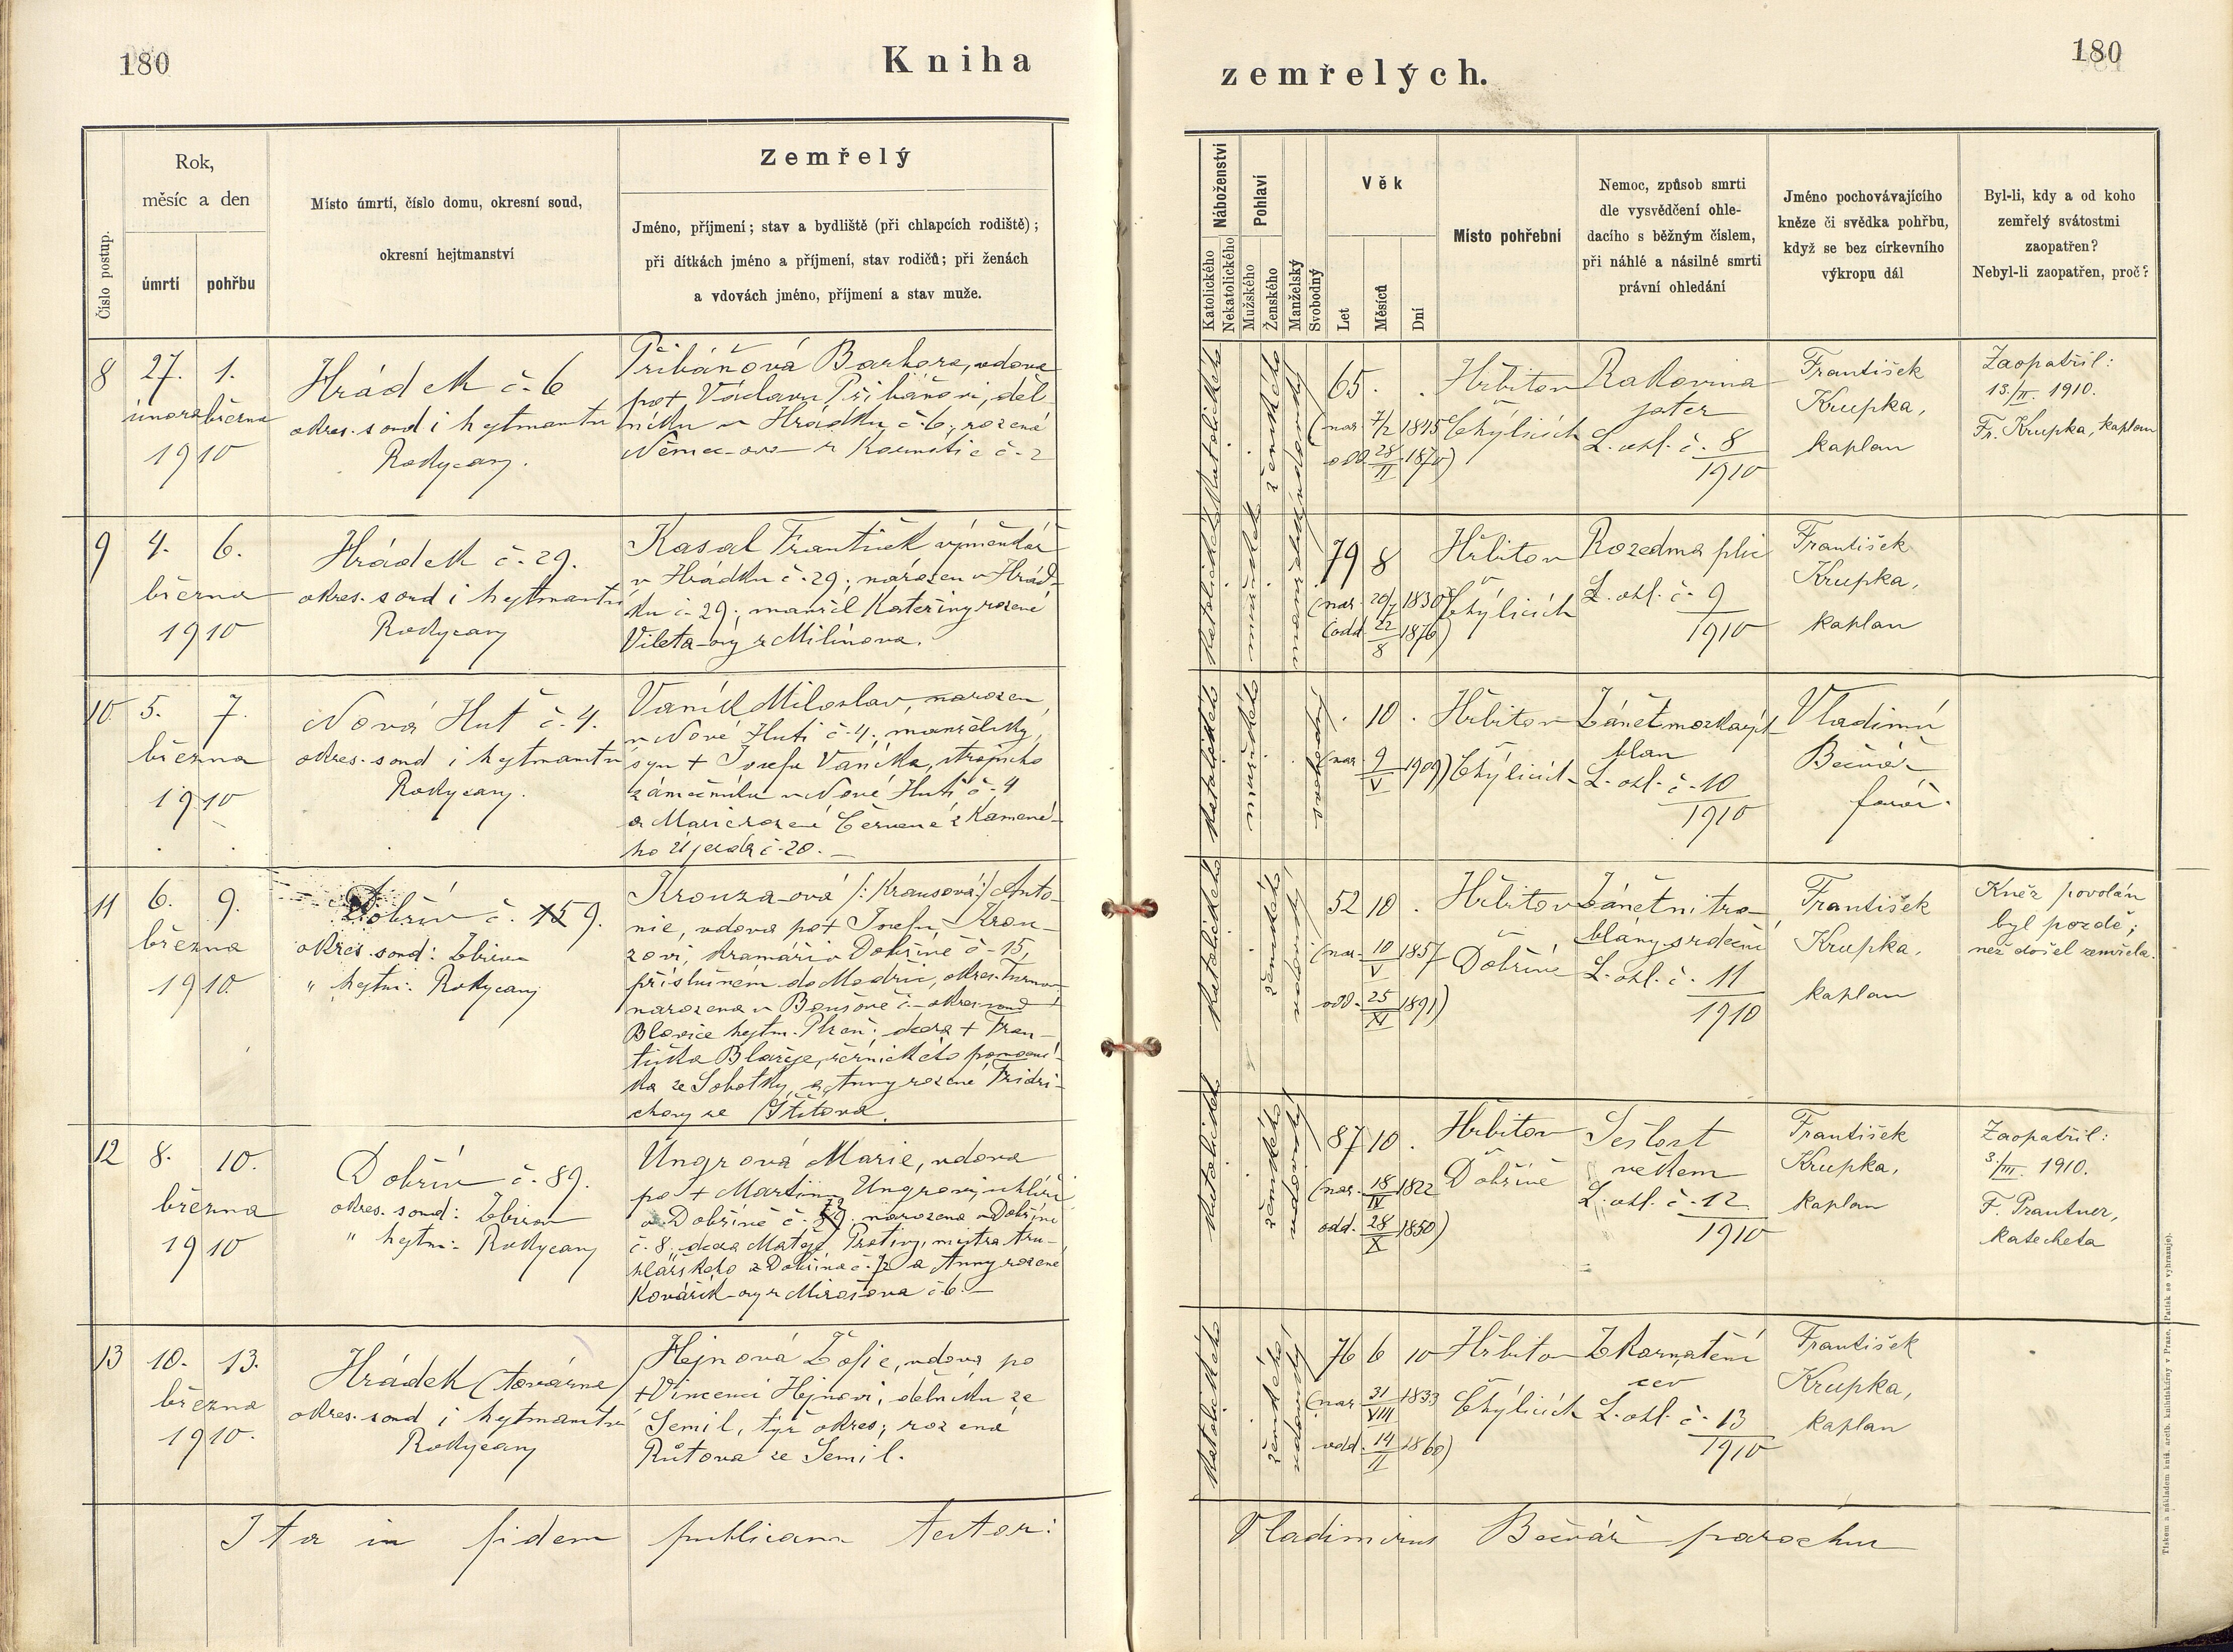 180
Kniha
zemřelých.
180
Číslo postup.
Rok,
měsíc a den
úmrtí
pohřbu
Místo úmrtí, číslo domu, okresní soud,
okresní hejtmanství
Zemřelý
Jméno, příjmení; stav a bydliště (při chlapcích rodiště);
při dítkách jméno a příjmení, stav rodičů; při ženách
a vdovách jméno, příjmení a stav muže.
Náboženství
Katolického
Nekatolického
Pohlaví
Mužského
Ženského
Manželský
Svobodný
Věk
Let
Měsíců
Dní
Místo pohřební
Nemoc, způsob smrti
dle vysvědčení ohle-
dacího s běžným číslem,
při náhlé a násilné smrti
právní ohledání
Jméno pochovávajícího
kněze či svědka pohřbu,
když se bez církevního
výkropu dál
Byl-li, kdy a od koho
zemřelý svátostmi
zaopatřen?
Nebyl-li zaopatřen, proč?
8
27. 1.
února března
1910
Hrádek č. 6
okres. soud i hejtmanství
Rokycany.
Přibáňová Barbora, vdova
po + Václavu Přibáňovi, děl-
níku v Hrádku č. 6, rozená
Němec-ova z Kornatic č. 2
katolického
ženského
vdovský
65.
(nar. 7/2 1845
odd. 28/II 1870)
Hřbitov
Čhýlicích
Rakovina
jater
L. ohl. č. 8
1910
František
Krupka,
kaplan
Zaopatřil:
13./II. 1910.
Fr. Krupka, kaplan
9
4. 6.
března
1910
Hrádek č. 29.
okres. soud i hejtmanství
Rokycany
Kasal František výměnkář
v Hrádku č. 29; narozen v Hrád-
ku č. 29; manžel Kateřiny rozené
Vileta-ovy z Milínova.
katolického
mužského
manželský
79 8
(nar. 20/7 1830
(odd. 22/8 1876)
Hřbitov
Čhýlicích
Rozedma plic
L. ohl. č. 9
1910
František
Krupka,
kaplan
10
5. 7.
března
1910
Nová Huť č. 4.
okres. soud i hejtmanství
Rokycany.
Vaník Miloslav, narozen
v Nové Huti č. 4; manželský
syn + Josefa Vaníka, strojního
zámečníka v Nové Huti č. 4
a Marie rozené Červené z Kamené-
ho Újezda č. 20. —
katolického
mužského
svobodný
. 10 .
(nar. 9/V 1909)
Hřbitov
Čhýlicích
Zánět mozkových
blan
L. ohl. č. 10
1910
Vladimír
Bečvář
farář.
11
6. 9.
března
1910.
Dobřív č. 159.
okres. soud: Zbiroh
" hejtm: Rokycany
Krouza-ová /: Krausová:/ Anto-
nie, vdova po + Josefu Krou-
zovi, kramáři v Dobřívě č. 15,
narozena v
Blovice hejtm. Plzeň; dcera + Fran-
tiška Blažeje, řeznického pomocní-
ka ze Sobotky, a Anny rozené Fridri-
chovy ze Štítova.
katolického
ženského
vdovský
52 10 .
(nar. 10/V 1857
odd. 25/XI 1891)
Hřbitov
Dobřívě
Zánět nitro-
blány srdeční
L. ohl. č. 11
1910
František
Krupka,
kaplan
Kněz povolán
byl pozdě;
než došel zemřela.
12
8. 10.
března
1910
Dobřív č. 89.
okres. soud: Zbiroh
" hejtm: Rokycany
Ungrová Marie, vdova
po + Martinu Ungrovi, uhlíři
v Dobřívě č. narozena v Dobřívě
č. 8, dcera Matěje Protivy, mistra tru-
hlářského z Dobříva č. a Anny rozené
Kovářík-ovy z Mirošova č. 6. —
katolického
ženského
vdovský
87 10 .
(nar. 18/IV 1822
odd. 28/X 1850)
Hřbitov
Dobřívě
Sešlost
věkem
L. ohl. č. 12
1910
František
Krupka,
kaplan
Zaopatřil:
3./III. 1910.
F. Prantner,
katecheta
13
10. 13.
března
1910.
Hrádek (továrna)
okres. soud i hejtmanství
Rokycany
Hejnová Žofie, vdova po
+ Vincenci Hejnovi, dělníku ze
Semil, týž okres; rozená
Růtova ze Semil.
katolického
ženského
vdovský
76 6 10
(nar. 31/VIII 1833
odd. 14/II 1860)
Hřbitov
Čhýlicích
Zkornatění
cev
L. ohl. č. 13
1910
František
Krupka,
kaplan
Ita in fidem publicam testor:
Vladimirus Bečvář parochus
Tiskem a nákladem kníž. arcib. knihtiskárny v Praze. (Patisk se vyhrazuje).